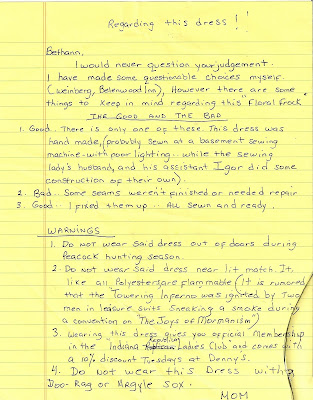 Regarding this dress!!
Bethann,
I would never question your judgement.
I have made some questionable choices myself.
(Weinberg, Belenwood Inn), However there are some
things to keep in mind regarding this "Floral Frock"
THE GOOD AND THE BAD
1. Good.. There is only one of these. This dress was
hand made, (probably sewn at a basement sewing
machine - with poor lighting.. while the sewing
lady's husband, and his assistant Igor did some
construction of their own).
2. Bad... Some seams weren't finished or needed repair
3. Good... I fixed them up... All sewn and ready.
WARNINGS
1. Do not wear said dress out of doors during
peacock hunting season.
2. Do not wear said dress near lit match. It,
like all Polyesters are flammable (It is rumored
that the Towering Inferno was ignited by Two
men in leisure suits Sneaking a smoke during
a convention on "The Joys of Mormanism")
3. Wearing this dress gives you official Membership
in the "Indiana Republican Ladies Club" and comes with
a 10% discount Tuesdays at Denny's.
4. Do not wear this Dress with a
Doo-Rag or Argyle Sox.
MOM